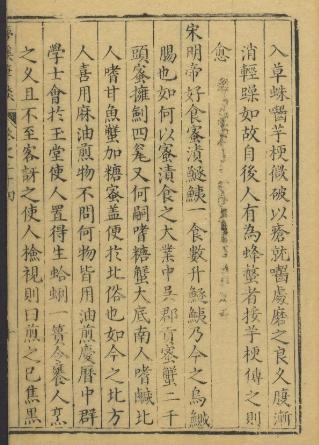 入草蛛嚙芋梗微破以瘡就嚙處磨之良久腹漸
消輕躁如故自後人有為蜂螫者挼芋梗傅之則
愈
宋明帝好食蜜漬鱁鮧一食數升鱁鮧乃今之烏鰂
腸也如何以蜜漬食之大業中吳郡貢蜜蟹二千
頭蜜擁劎四瓮又何嗣嗜糖蟹大底南人嗜鹹北
人嗜甘魚蟹加糖蜜盖便於北俗也如今之北方
人喜用麻油煎物不問何物皆用油煎慶曆中群
學士會於玉堂使人置得生蛤蜊一簣令饔人烹
之久且不至客訝之使人檢視則曰煎之已焦黑